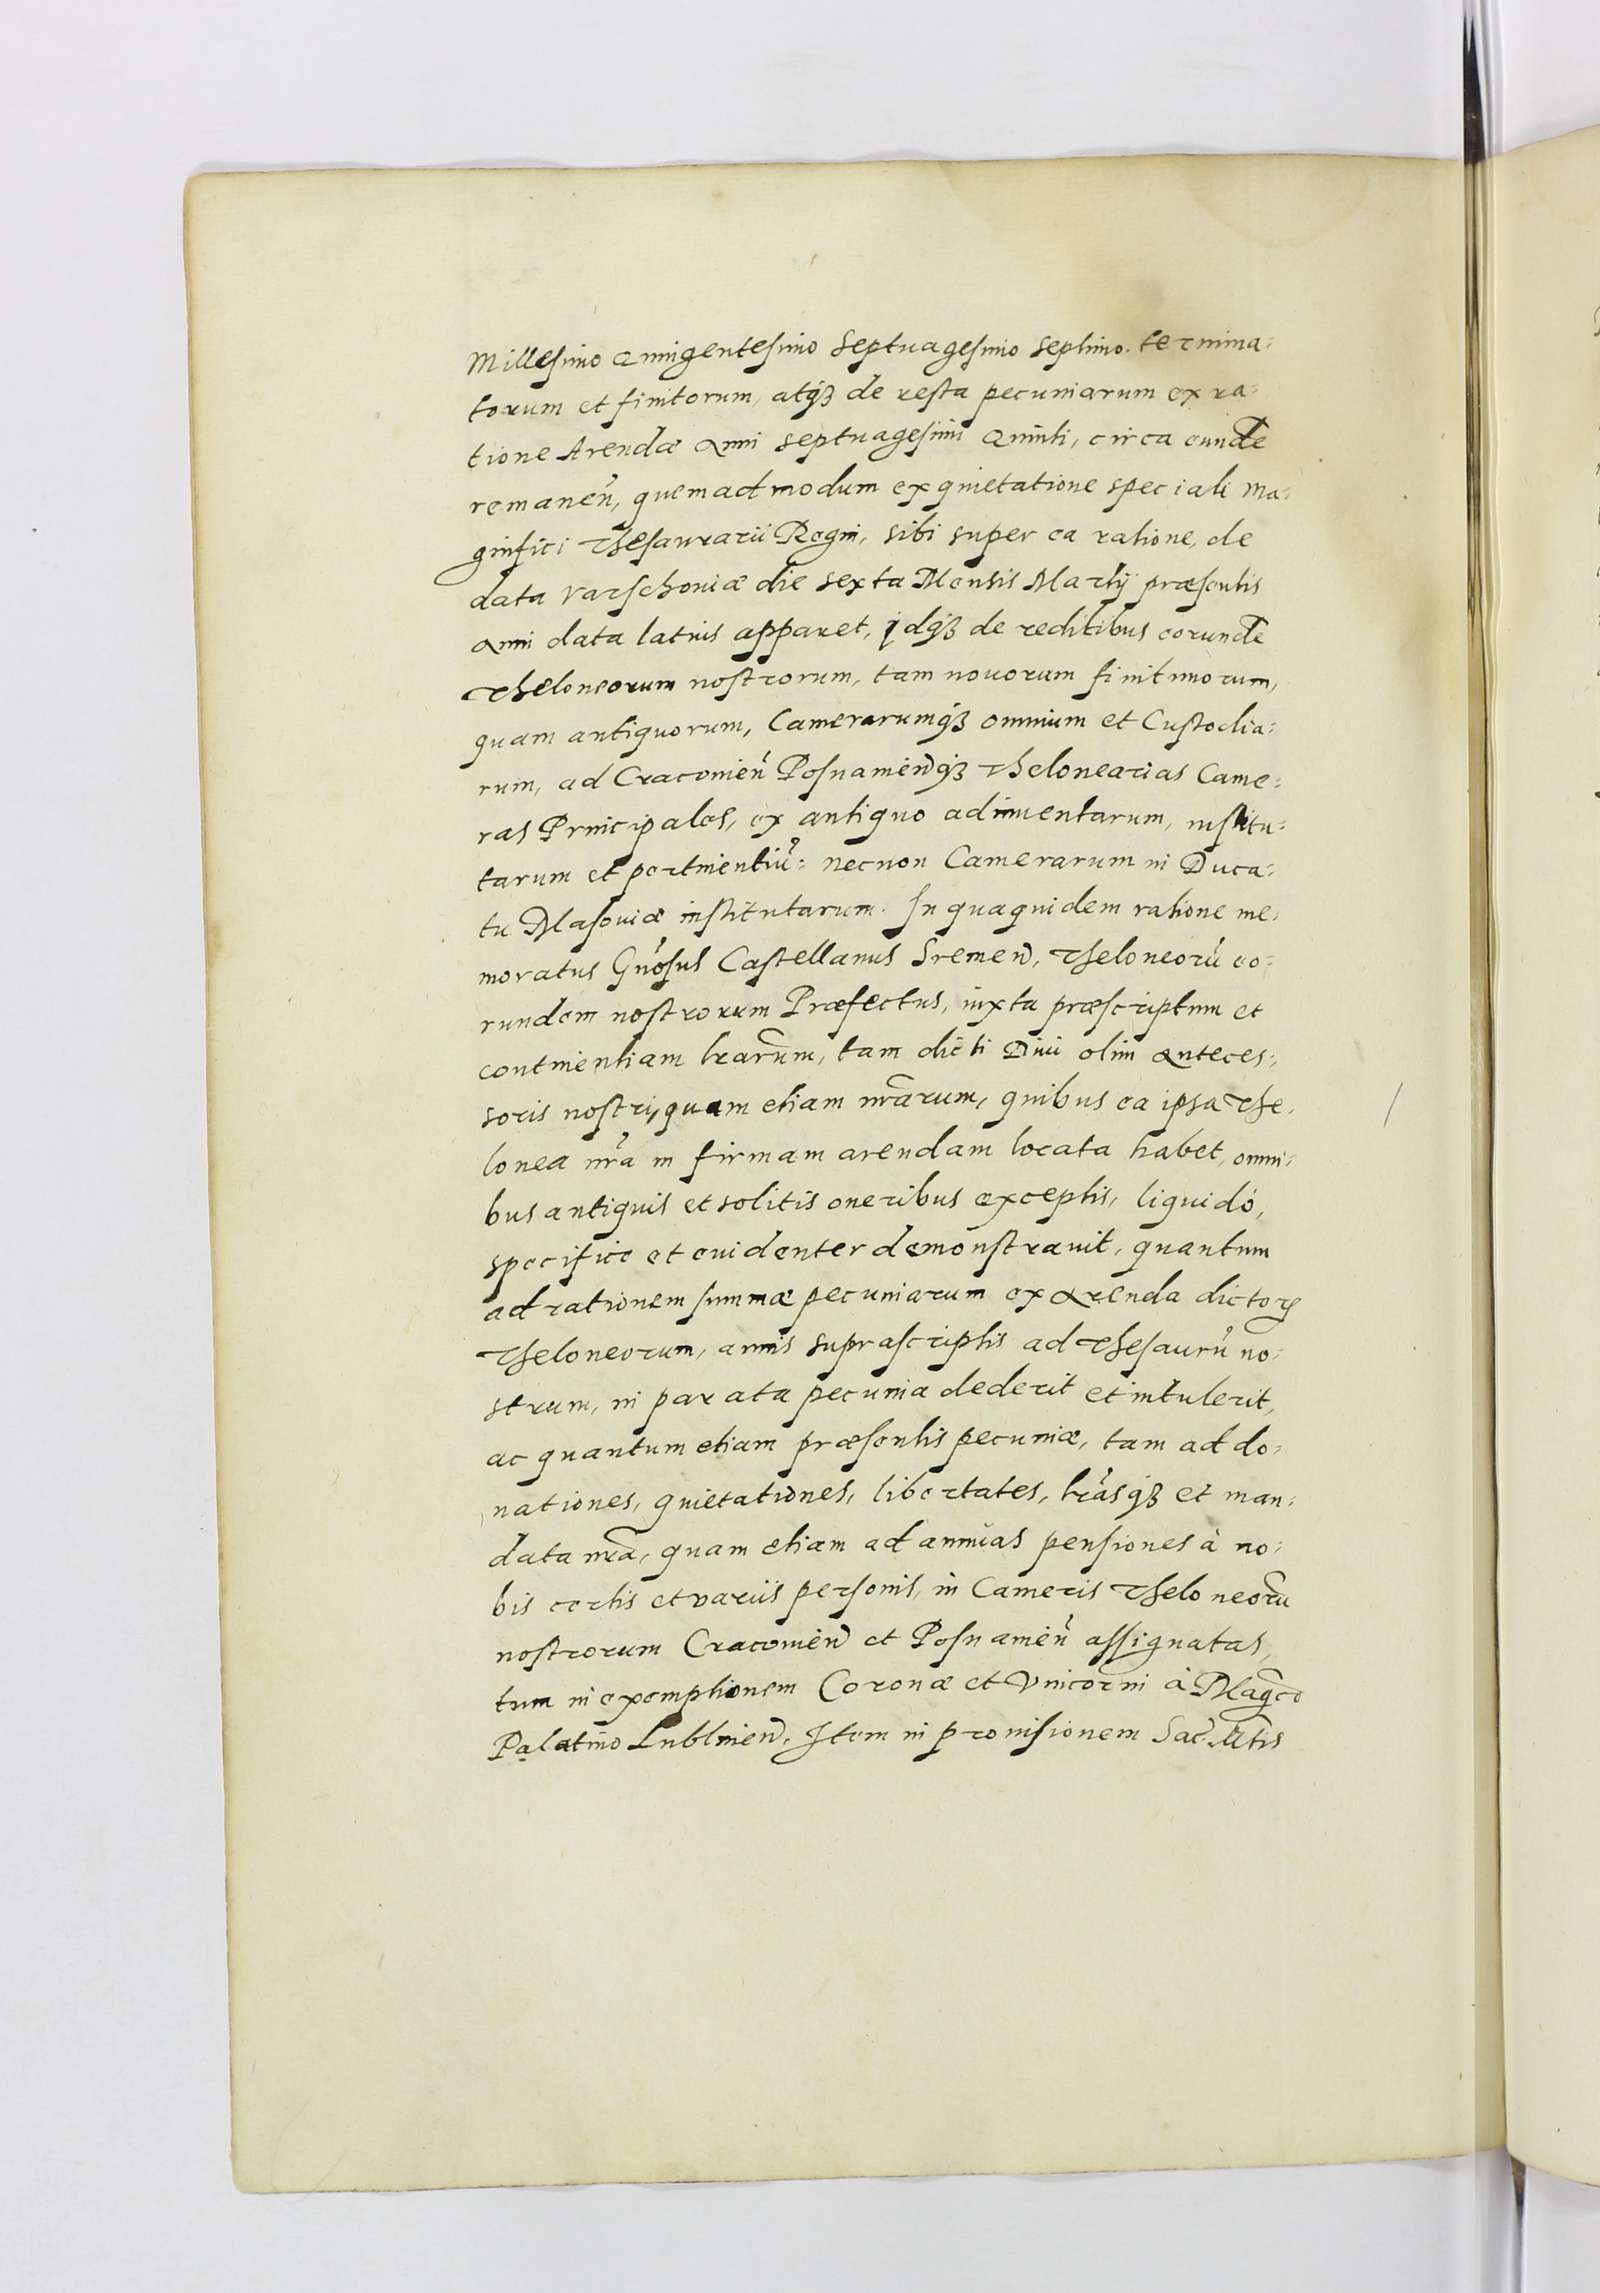 Millesimo Quingentesimo Septuagesimo septimo. termina=
torum et finitorum, atq̃ꝫ de resta pecuniarum ex ra=
tione Arendæ Anni septuagesimi Quinti, circa eundẽ
remaneñ, quemadmodum ex quietatione speciali Ma=
gnifici Thesaurarii Regni, sibi super ea ratione, de
data Varschoviæ die sexta Mensis Martij præsentis
Anni data latius apparet, Idq̃ꝫ de reditibus eorundẽ
Theloneorum nostrorum, tam novorum finitimorum,
quam antiquorum, Camerarumq̃ꝫ omnium et Custodia=
rum, ad Cracovieñ Posnamieñq̃ꝫ Thelonearias Came=
ras Principales, ex antiquo adinventarum, institu=
tarum et pertinentiũ: necnon Camerarum in Duca=
tu Masoviæ institutarum. In quaquidem ratione me=
moratus Gñosus Castellanus Sremeñ, Theloneorũ eo=
rundem nostrorum Præfectus, iuxta præscriptum et
continentiam lrarum̃, tam dicti Divi olim Anteces=
soris nostri, quam etiam nr̃arum, quibus ea ipsa The=
lonea nr̃a in firmam arendam locata habet, omni=
bus antiquis et solitis oneribus exceptis, liquidó,
specifice et evidenter demonstravit, quantum
ad rationem summæ pecuniarum ex Arenda dictoꝝ
Theloneorum, annis suprascriptis ad Thesaurũ no=
strum, in parata pecunia dederit et intulerit,
ac quantum etiam præsentis pecuniæ, tam ad do=
nationes, quietationes, libertates, lr̃asq̃ꝫ et man=
data nr̃a, quam etiam ad annuas pensiones à no=
bis certis et variis personis, in Cameris Theloneorũ
nostrorum Cracovieñ et Posnamieñ assignatas,
tum in exemptionem Coronæ et Unicorni à Mag̃co
Palatino Lublineñ, Item in provisionem Sac̃. Mtis